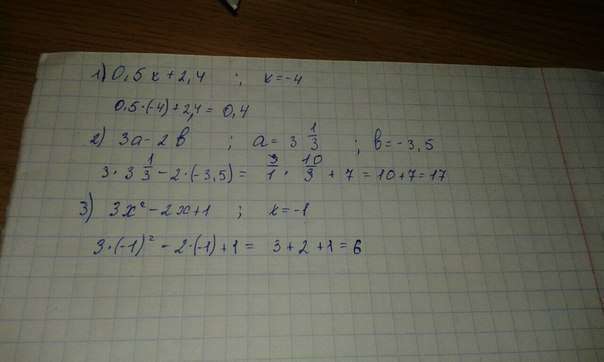 1) 0,5x+2,4 ; x=-4
0,5·(-4)+2,4=0,4
2) 3a-2b ; a=3 1/3 ; b=-3,5
3·3 1/3-2·(-3,5)= 3/1·10/3+7=10+7=17
3) 3x²-2x+1 ; x=-1
3·(-1)²-2·(-1)+1= 3+2+1=6